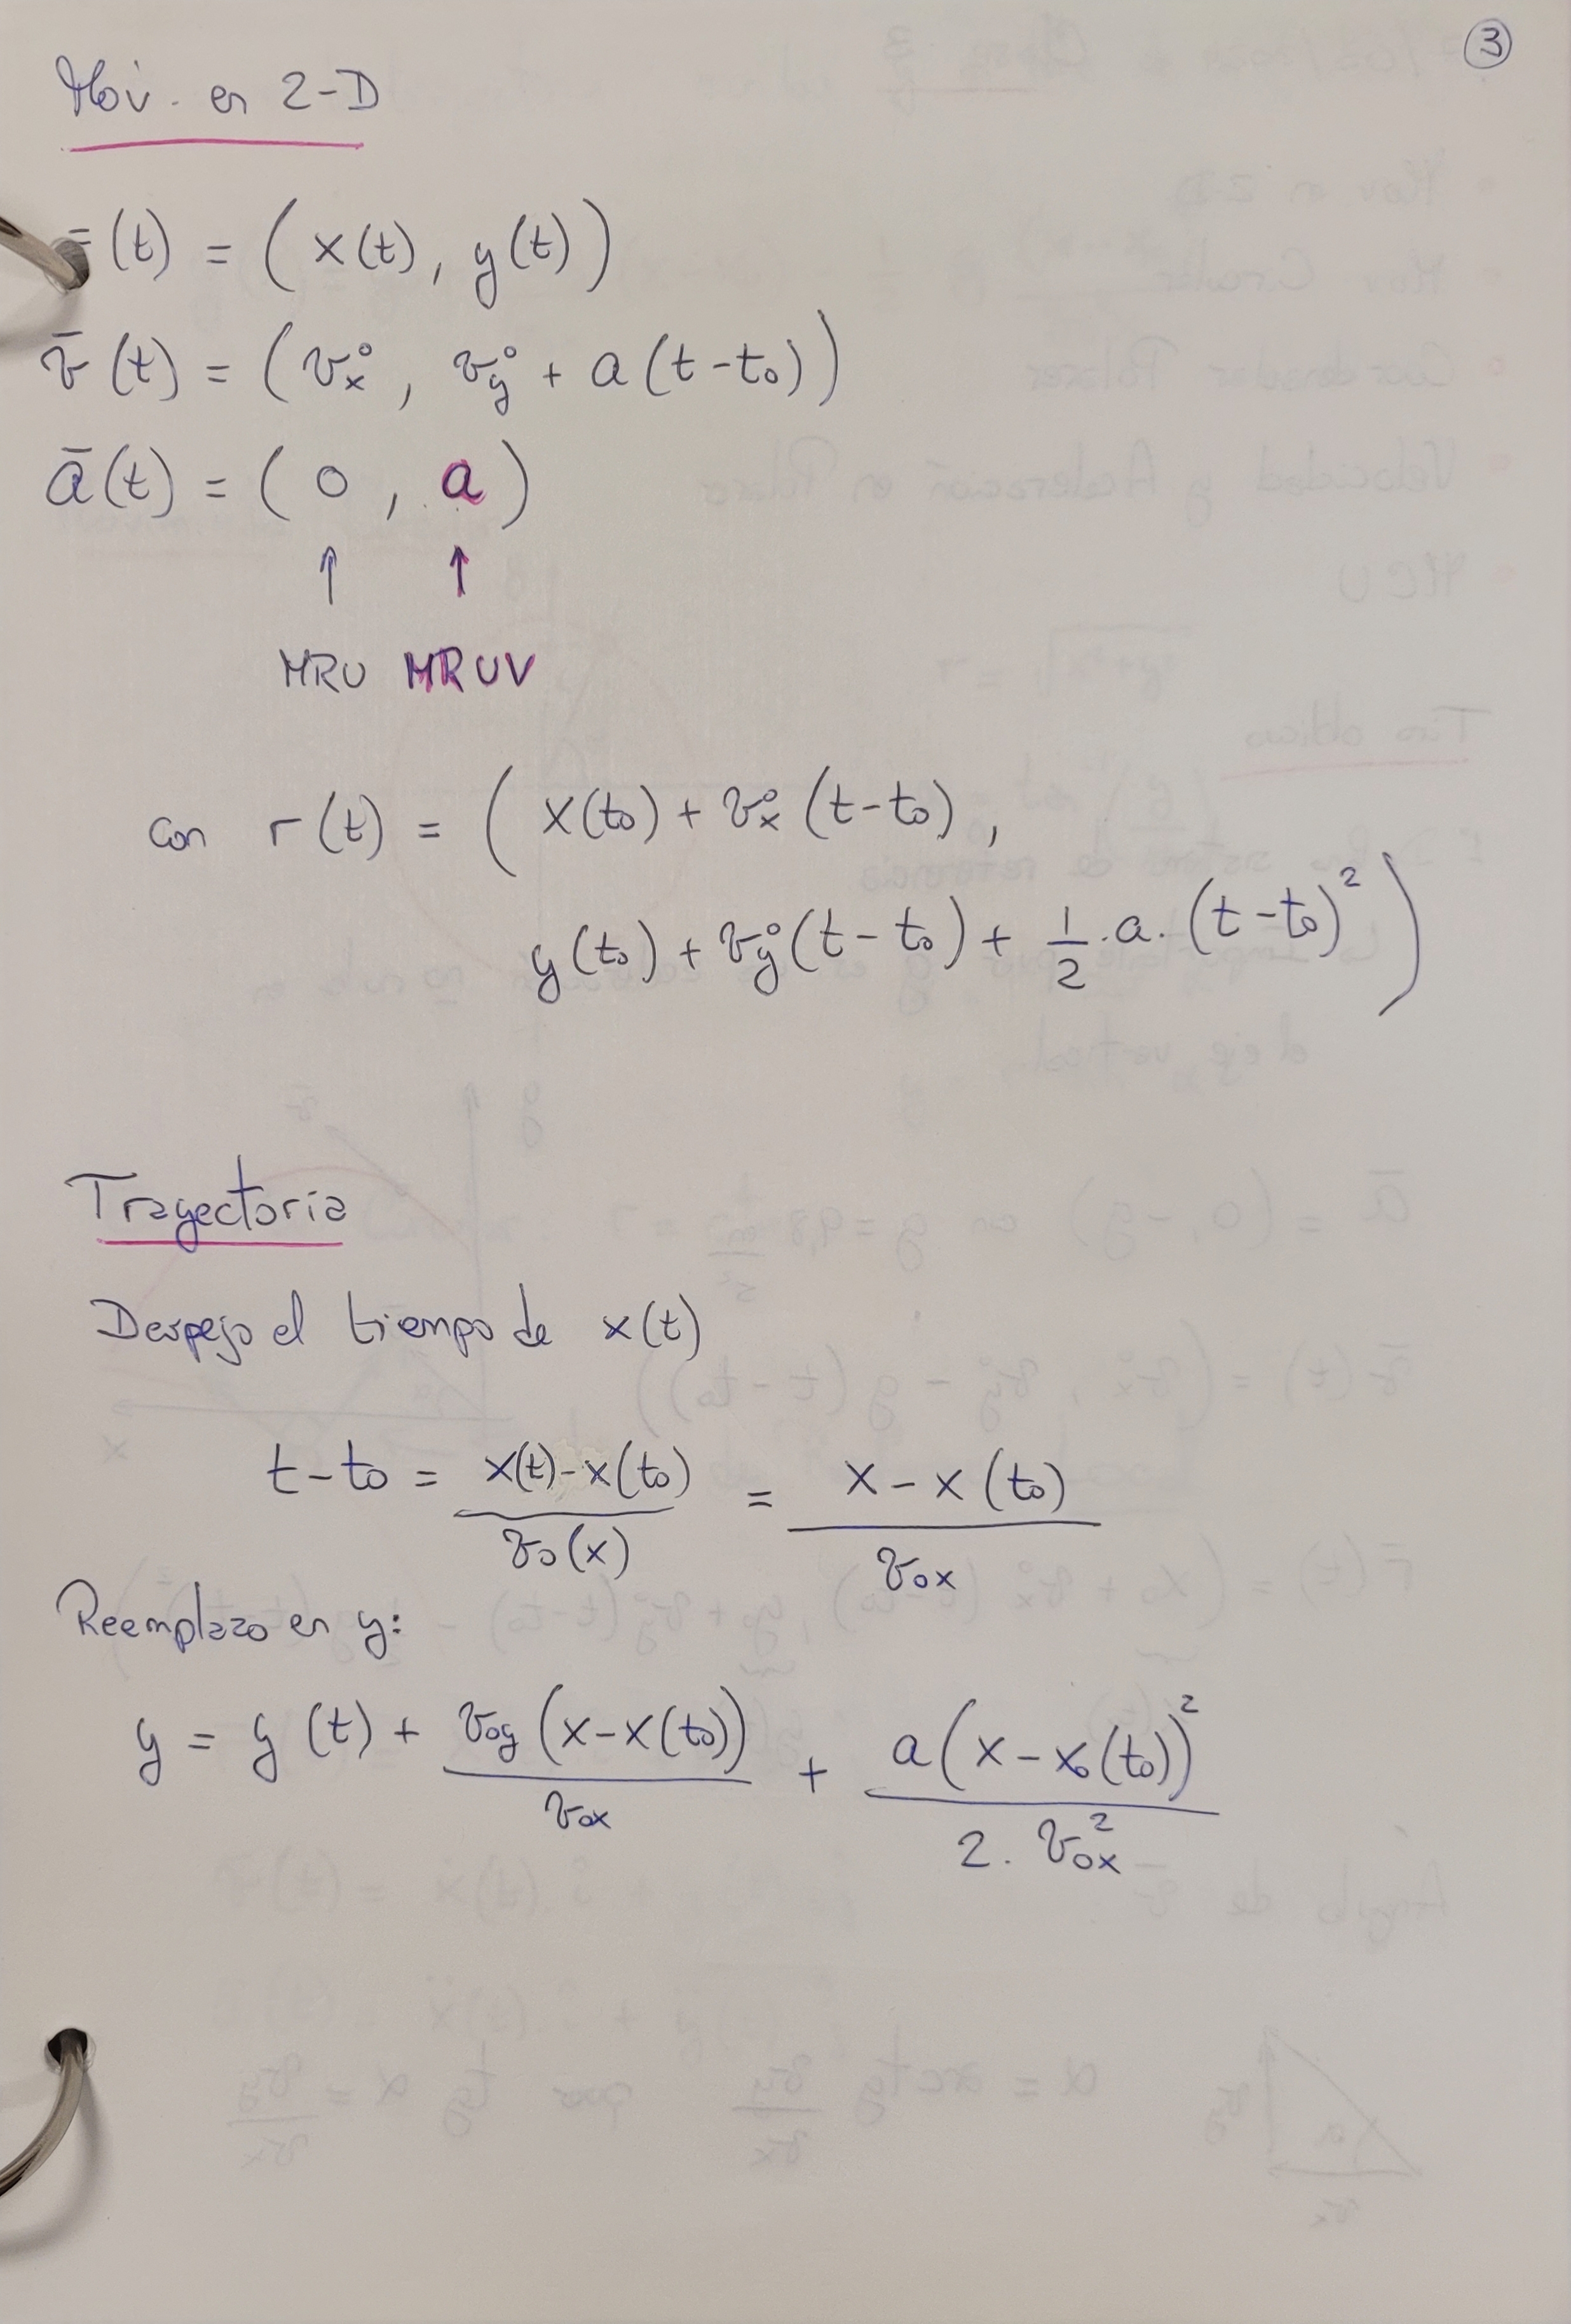 3
Mov. en 2-D
r̄(t) = (x(t), y(t))
v̄(t) = (vₓ°, v_y° + a(t-t₀))
ā(t) = (0, a)
↑ ↑
MRU MRUV
con r(t) = (x(t₀) + vₓ°(t-t₀),
y(t₀) + v_y°(t-t₀) + 1/2 · a · (t-t₀)²)
Trayectoria
Despejo el tiempo de x(t)
t-t₀ = (x(t)-x(t₀))/(v₀(x)) = (x-x(t₀))/(v₀ₓ)
Reemplazo en y:
y = y(t) + (v₀y(x-x(t₀)))/(v₀ₓ) + (a(x-x₀(t₀))²)/(2. v₀ₓ²)